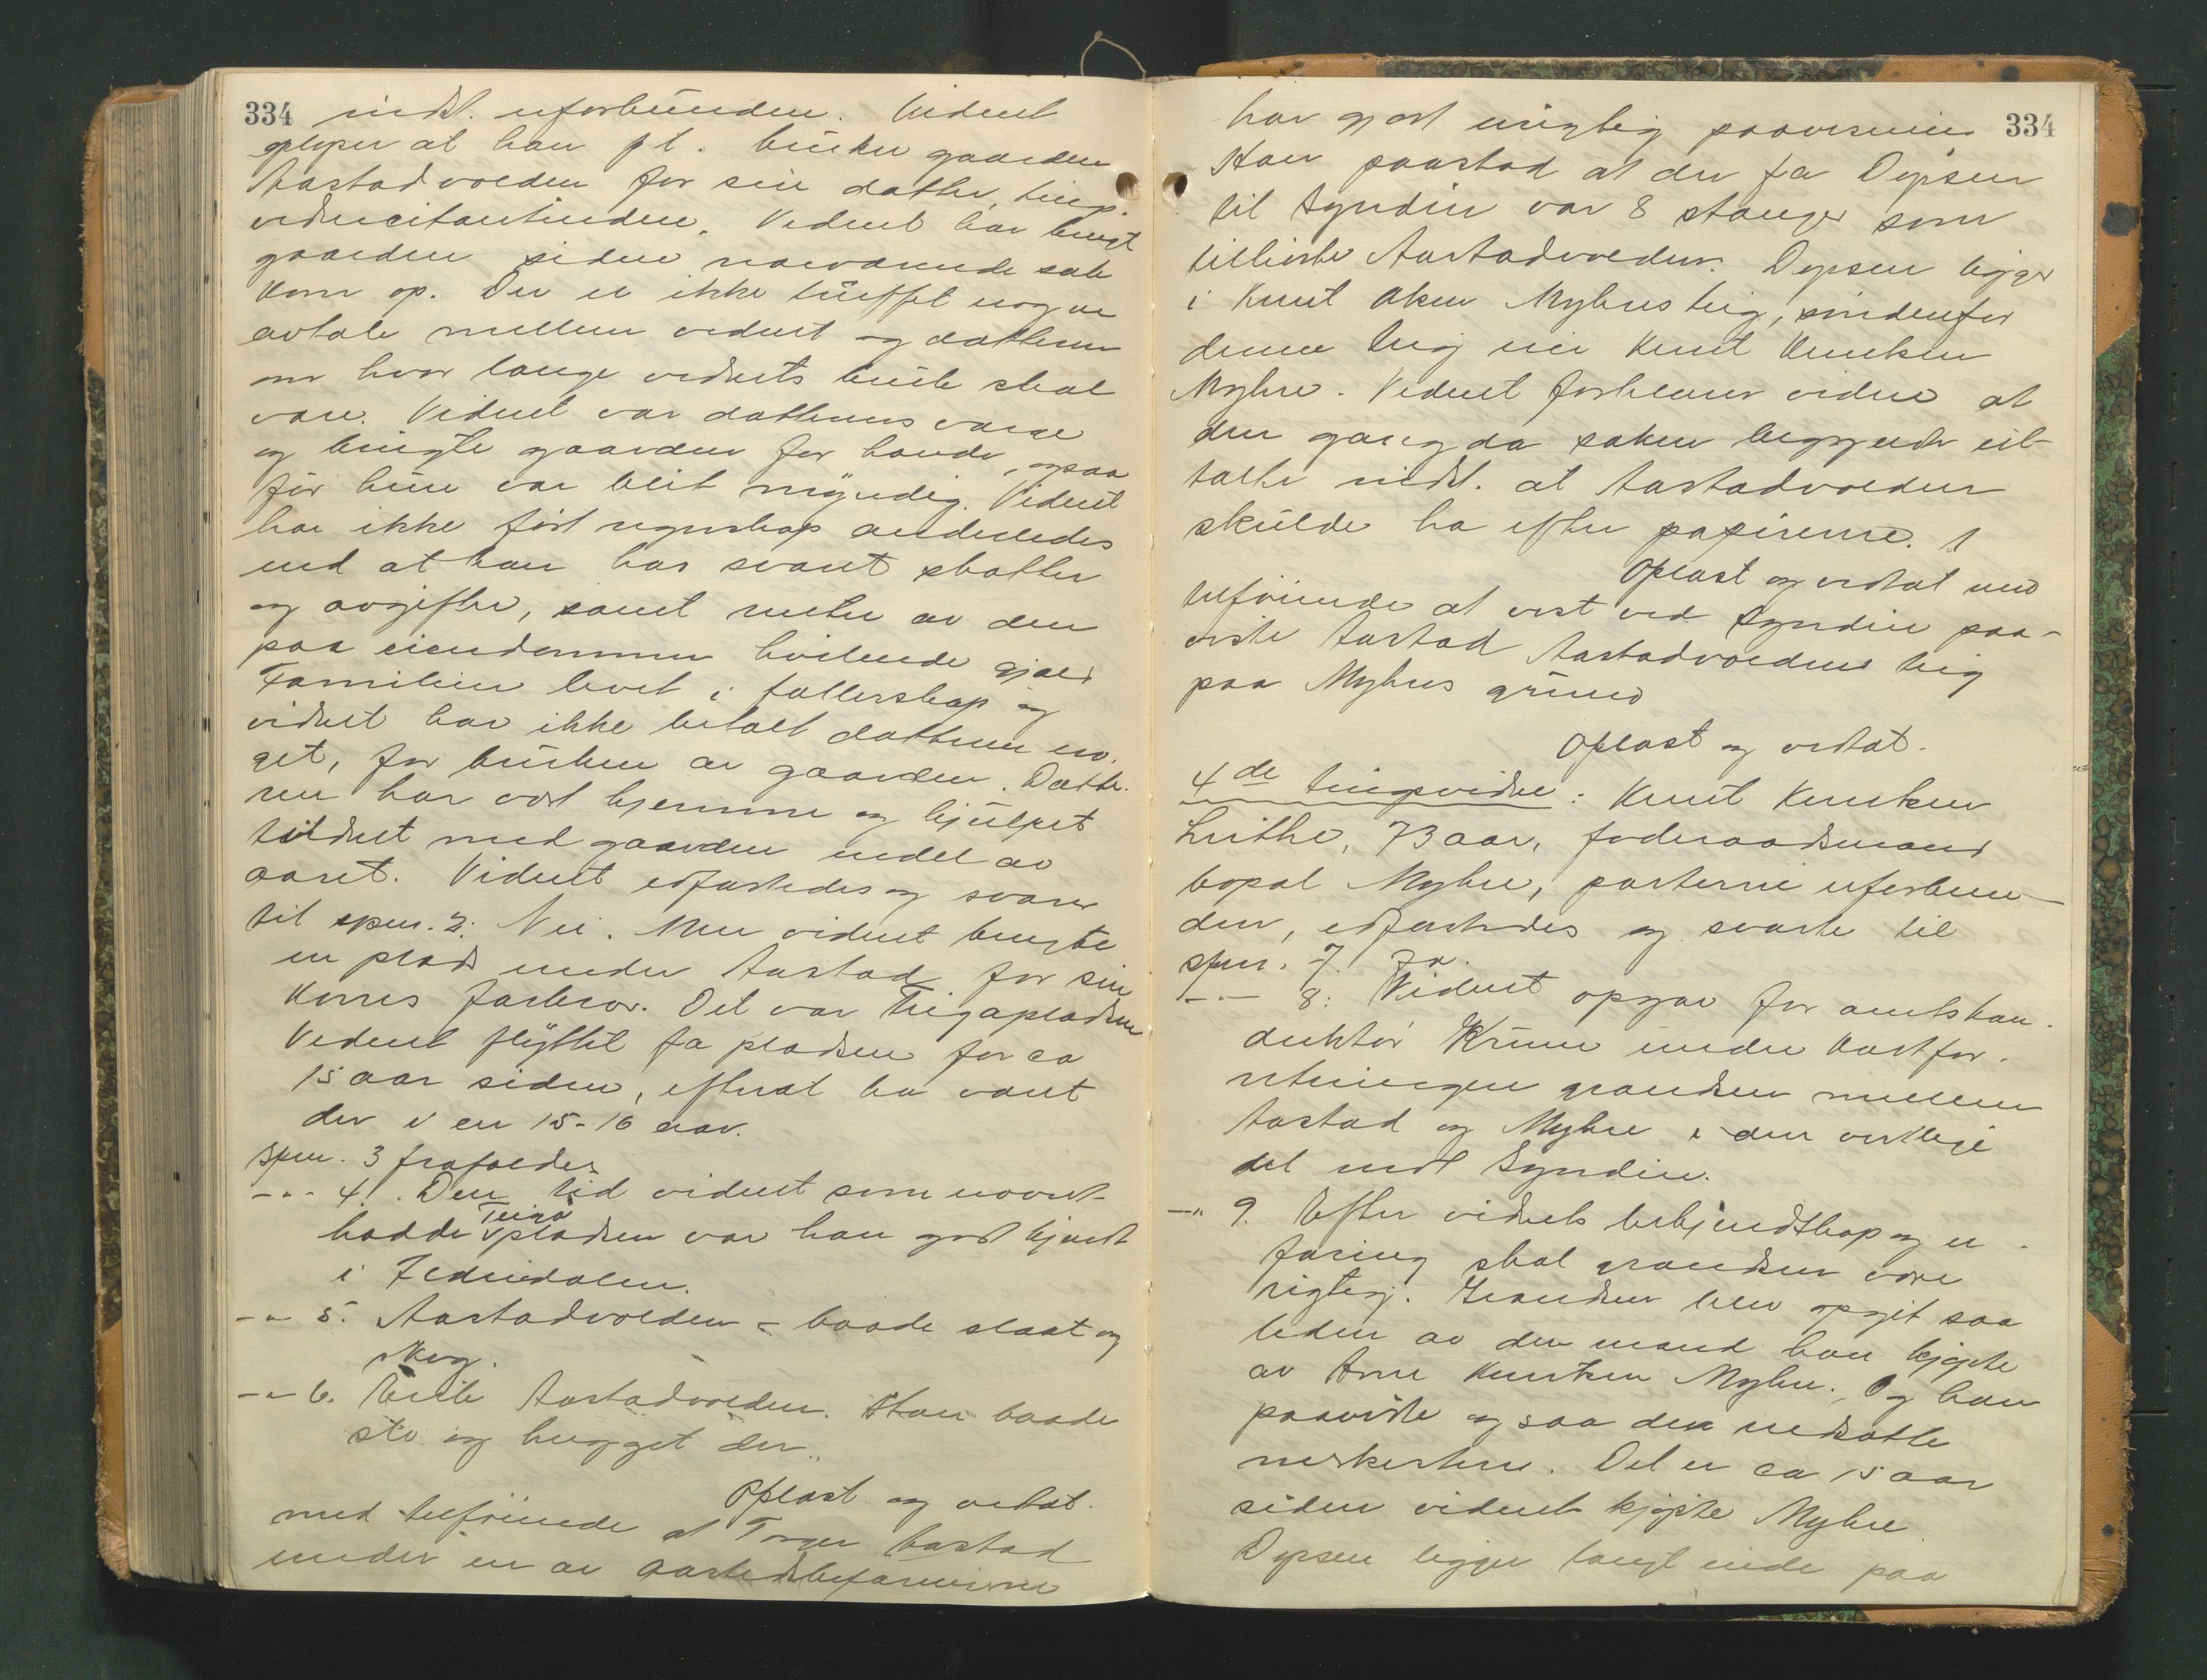 334 indst. uforbunden. Vidnet
oplyser at han f.t. bruker gaarden
Aastadvolden for sin datter, ting-
vidnecitantinden. Vidnet har brugt
gaarden siden nærværende sak
kom op. Der er ikke truffet nogen
avtale mellem vidnet og datteren
om hvor længe vidnets bruk skal
vare. Vidnet var datterens værge
og brugte gaarden for hende, ogsaa
før hun var blit myndig. Vidnet
har ikke ført regnskap anderledes
end at han har svaret skatter
og avgifter, samt renter av den
paa eiendommen hvilende gjæld
Familien levet i fællerskap og
vidnet har ikke betalt datteren no-
get, for bruken av gaarden. Datte-
ren har vært hjemme og hjulpet
vidnet med gaarden endel av
aaret. Vidnet edfæstedes og svarer
til spm. 2: Nei. Men vidnet brugte
en plads under Aastad for sin
kones farbror. Det var Teigapladsen
Vidnet flyttet fra pladsen for ca
15 aar siden, efterat ha været
der i en 15-16 aar.
Spm. 3 frafaldes
-"- 4. Den tid vidnet som nævnt
hadde Teigapladsen var han god kjendt
i
-"- 5. Aastadvolden = baade slaat og
skog.
-"- 6. Bruk Aastadvolden. Han baade
slo og hugget der.
Oplæst og vedtat.
med tilføiende at Torger Aastad
under en av aastedsbefaringerne
har gjort urigtig paavisning 334
Han paastod at der fra Dypsen
til Syndin var 8 stænger som
tilhørte Aastadvolden. Dypsen ligger
i Knut Olsen Myhres teig, søndenfor
denne teig eier Knut Knutsen
Myhre. Vidnet forklarer videre at
den gang da saken begyndte ut-
talte indst. at Aastadvolden
skulde ha efter papirerne. 1
Oplæst og vedtat med
tilføiende at vest ved Syndin paa-
viste Aastad Aastadvoldens teig
paa Myhres grund
Oplæst og vedtat.
4de tingsvidne: Knut Knutsen
Leithe, 73 aar, føderaadsmand
bopal Myhre, parterne uforbun-
den, edfæstedes og svarte til
spm. 7. Ja.
-"- 8: Vidnet opgav for amtskon-
duktør Krum under kartfor-
retningen grændsen mellem
Aastad og Myhre i den vestlige
del mot Syndin.
-"- 9. Efter vidnets bekjendtskap og er-
faring skal grændsen være
rigtig. Grændsen blev opgit saa-
leden av den mand han kjøpte
av Arne Knutsen Myhre. Og han
paaviste ogsaa den nedsatte
merkesten. Det er ca 15 aar
siden vidnet kjøpte Myhre.
Dypsen ligger langt inde paa